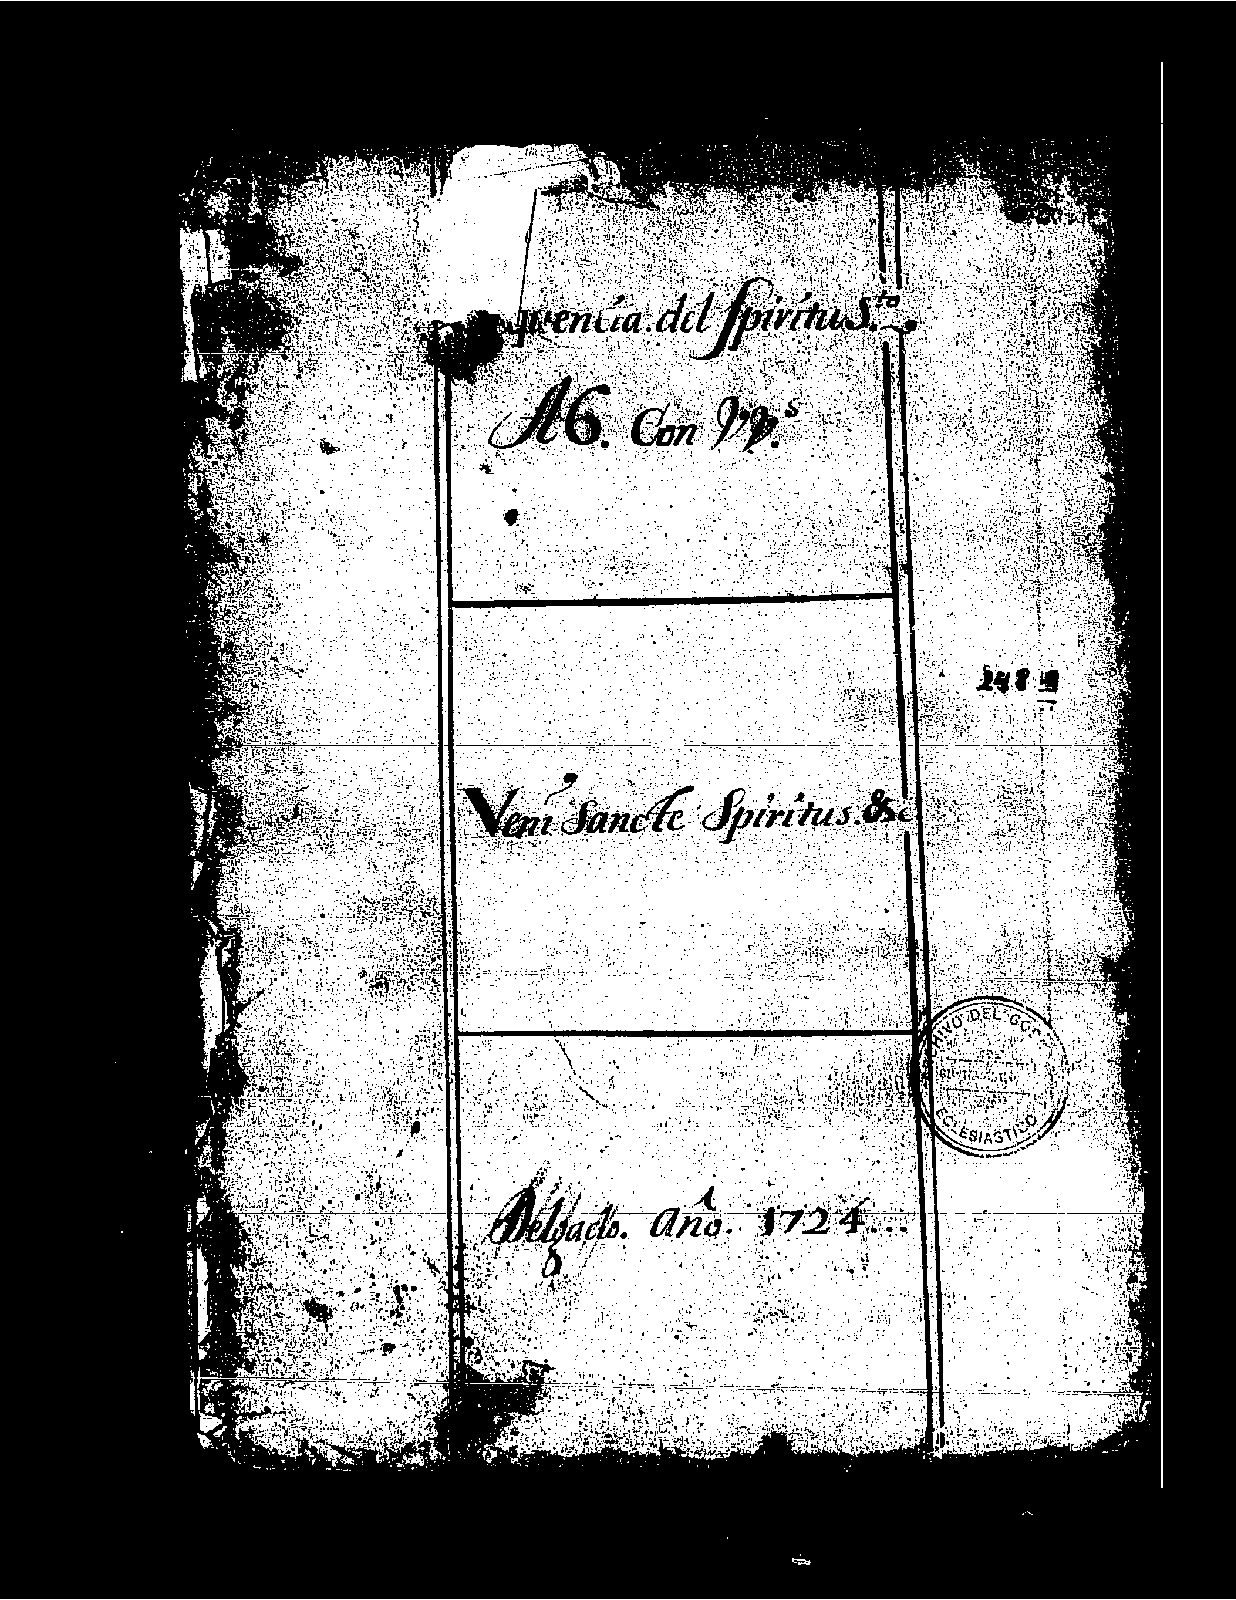 uencia. del Spiritu S.to
A 6. Con VV.s
248
Veni Sancte Spiritus. &c
ECLESIASTICO
Delgado. Año. 1724...